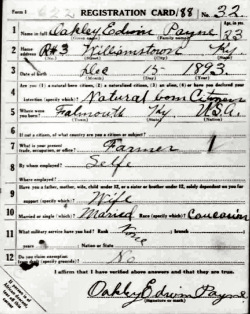 Form 1 REGISTRATION CARD/88 No. 32
1 Name in full Oakley Edwin Payne 23
(Given name) (Family name) Age, in yrs
2 Home address R#3 Williamstown Ky.
(No.) (Street) (City) (State)
3 Date of birth Dec 15 1893
(Month) (Day) (Year)
4 Are you (1) a natural-born citizen, (2) a naturalized citizen, (3) an alien, (4) or have you declared your
intention (specify which)? Natural born Citizen
5 Where were you born? Falmouth Ky U.S.A.
(Town) (State) (Nation)
6 If not a citizen, of what country are you a citizen or subject?
7 What is your present trade, occupation, or office? Farmer 1
8 By whom employed? Selfe
Where employed?
9 Have you a father, mother, wife, child under 12, or a sister or brother under 12, solely dependent on you for
support (specify which)? Wife
10 Married or single (which)? Married Race (specify which)? Caucasion
11 What military service have you had? Rank None branch
years Nation or State
12 Do you claim exemption from draft (specify grounds)? No
I affirm that I have verified above answers and that they are true.
Oakley Edwin Payne
(Signature or mark)